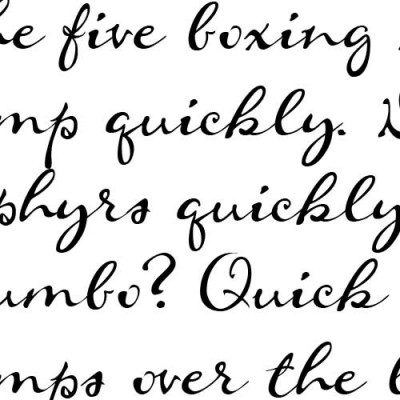 he five boxing
mp quickly.
phyrs quickly
umbo? Quick
mps over the